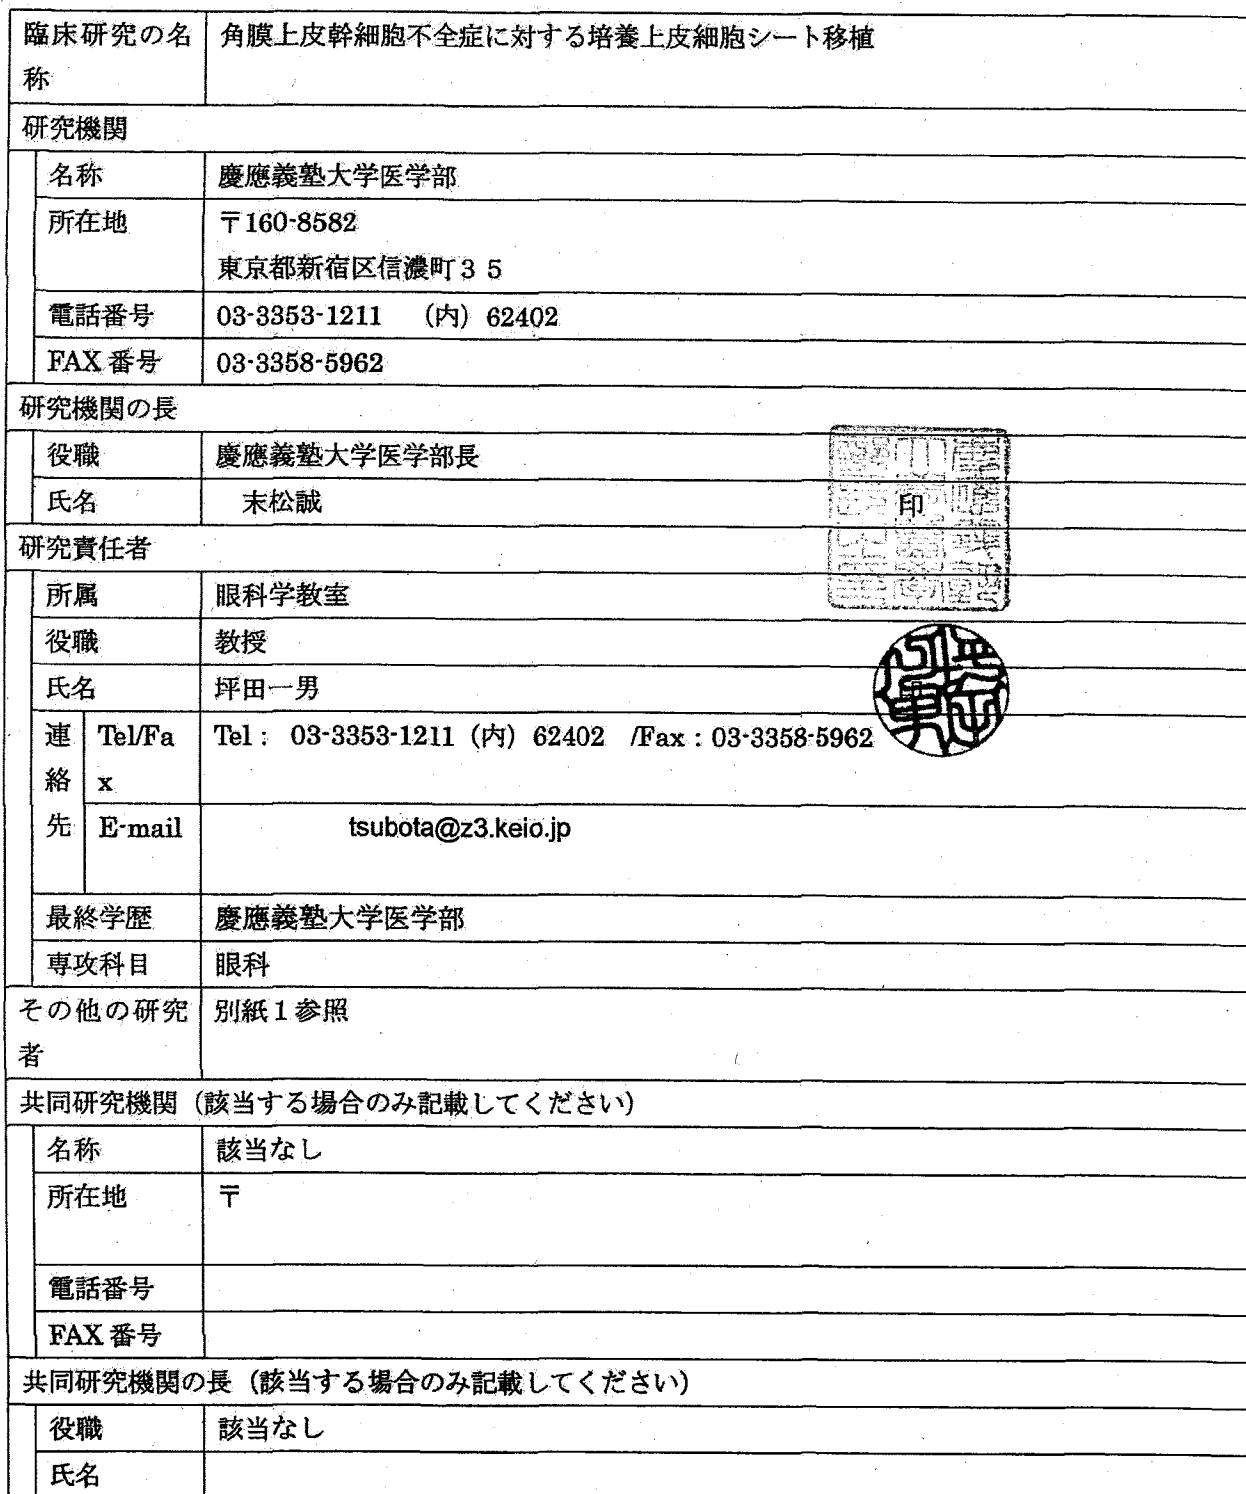 臨床研究の名 角膜上皮幹細胞不全症に対する培養上皮細胞シート移植
称
研究機関
名称 慶應義塾大学医学部
所在地 〒160-8582
東京都新宿区信濃町３５
電話番号 03-3353-1211 （内）62402
FAX 番号 03-3358-5962
研究機関の長
役職 慶應義塾大学医学部長
氏名 末松誠 印
研究責任者
所属 眼科学教室
役職 教授
氏名 坪田一男
連 Tel/Fa Tel： 03-3353-1211（内）62402 /Fax：03-3358-5962
絡 x
先 E-mail tsubota@z3.keio.jp
最終学歴 慶應義塾大学医学部
専攻科目 眼科
その他の研究 別紙１参照
者
共同研究機関（該当する場合のみ記載してください）
名称 該当なし
所在地 〒
電話番号
FAX 番号
共同研究機関の長（該当する場合のみ記載してください）
役職 該当なし
氏名